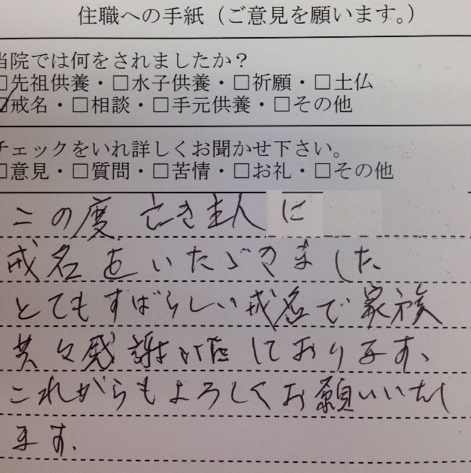 住職への手紙（ご意見を願います。）
当院では何をされましたか？
□先祖供養・□水子供養・□祈願・□土仏
☑戒名・□相談・□手元供養・□その他
チェックをいれ詳しくお聞かせ下さい。
□意見・□質問・□苦情・□お礼・□その他
この度 亡き主人に
戒名をいただきました
とてもすばらしい戒名で家族
共々感謝いたしております、
これからもよろしくお願いいたし
ます.